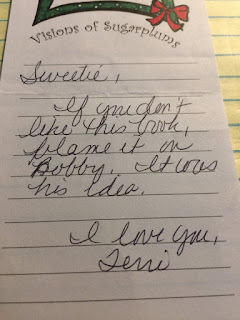 Visions of Sugarplums
Sweetie,
If you don't
like this book,
blame it on
Bobby. It was
his idea.
I love you,
Terri